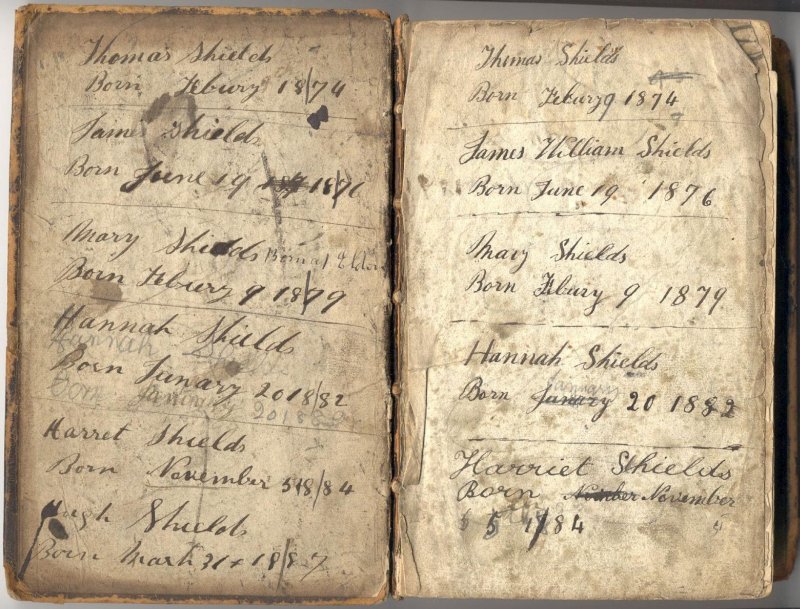 Thomas Shields
Born Febury 18/74
James Shields
Born June 19 18/76
Mary Shields Born at
Born Febury 9 18/79
Hannah Shields
Hannah Shields
Born Junary 20 18/82
Born January 20 1882
Harret Shields
Born November 5 18/84
Hugh Shields
Born March 31 18/87
Thomas Shields
Born Febury 9 1874
James William Shields
Born June 19 1876
Mary Shields
Born Febury 9 1879
Hannah Shields
January
Born Janary 20 1882
Harriet Shields
Born November
5 1/84